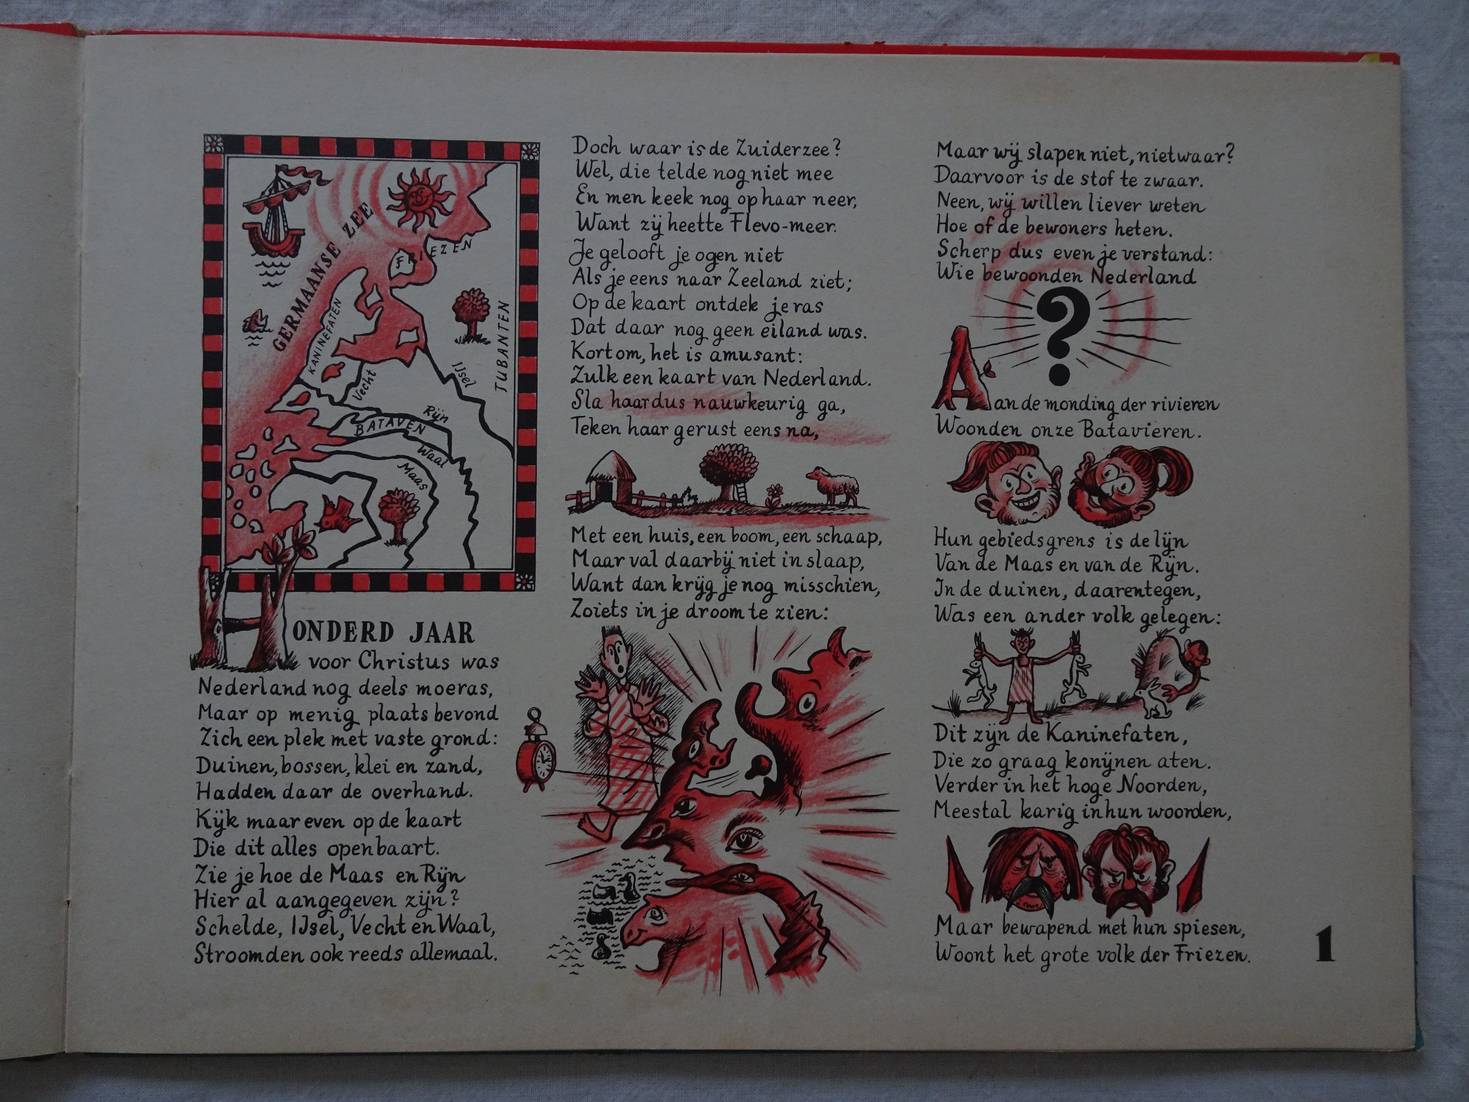 GERMAANSE ZEE
FRIEZEN
KANINEFATEN
TUBANTEN
IJsel
Vecht
Rijn
BATAVEN
Waal
Maas
HONDERD JAAR
voor Christus was
Nederland nog deels moeras,
Maar op menig plaats bevond
Zich een plek met vaste grond:
Duinen, bossen, klei en zand,
Hadden daar de overhand.
Kijk maar even op de kaart
Die dit alles openbaart.
Zie je hoe de Maas en Rijn
Hier al aangegeven zijn?
Schelde, IJsel, Vecht en Waal,
Stroomden ook reeds allemaal.
Doch waar is de Zuiderzee?
Wel, die telde nog niet mee
En men keek nog op haar neer,
Want zij heette Flevo-meer.
Je gelooft je ogen niet
Als je eens naar Zeeland ziet;
Op de kaart ontdek je ras
Dat daar nog geen eiland was.
Kortom, het is amusant:
Zulk een kaart van Nederland.
Sla haar dus nauwkeurig ga,
Teken haar gerust eens na,
Met een huis, een boom, een schaap,
Maar val daarbij niet in slaap,
Want dan krijg je nog misschien,
Zoiets in je droom te zien:
Maar wij slapen niet, nietwaar?
Daarvoor is de stof te zwaar.
Neen, wij willen liever weten
Hoe of de bewoners heten.
Scherp dus even je verstand:
Wie bewoonden Nederland
?
Aan de monding der rivieren
Woonden onze Batavieren.
Hun gebiedsgrens is de lijn
Van de Maas en van de Rijn.
In de duinen, daarentegen,
Was een ander volk gelegen:
Dit zijn de Kaninefaten,
Die zo graag konijnen aten.
Verder in het hoge Noorden,
Meestal karig in hun woorden,
Maar bewapend met hun spiesen,
Woont het grote volk der Friezen.
1